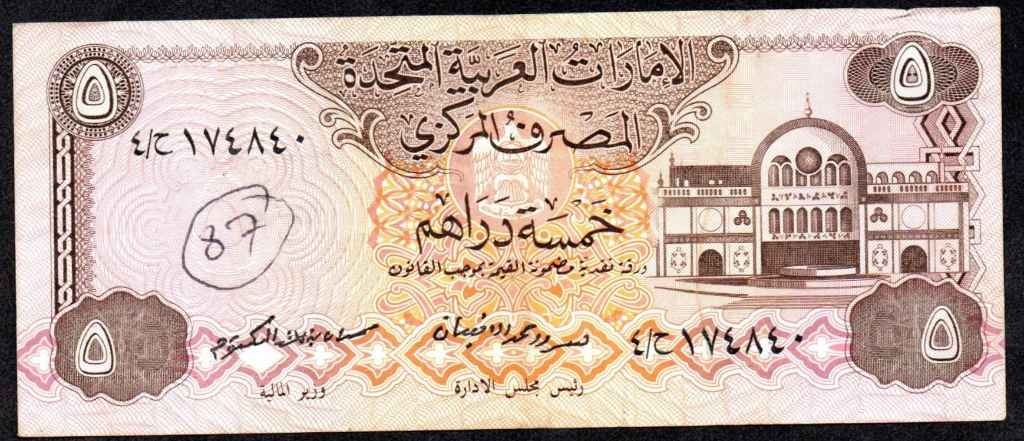 ٥
الإمارات العربية المتحدة
٥
المصرف المركزي
٤/ح١٧٤٨٤٠
87
خمسة دراهم
ورقة نقدية مضمونة القيمة بموجب القانون
٥
٤/ح١٧٤٨٤٠
٥
رئيس مجلس الادارة
وزير المالية